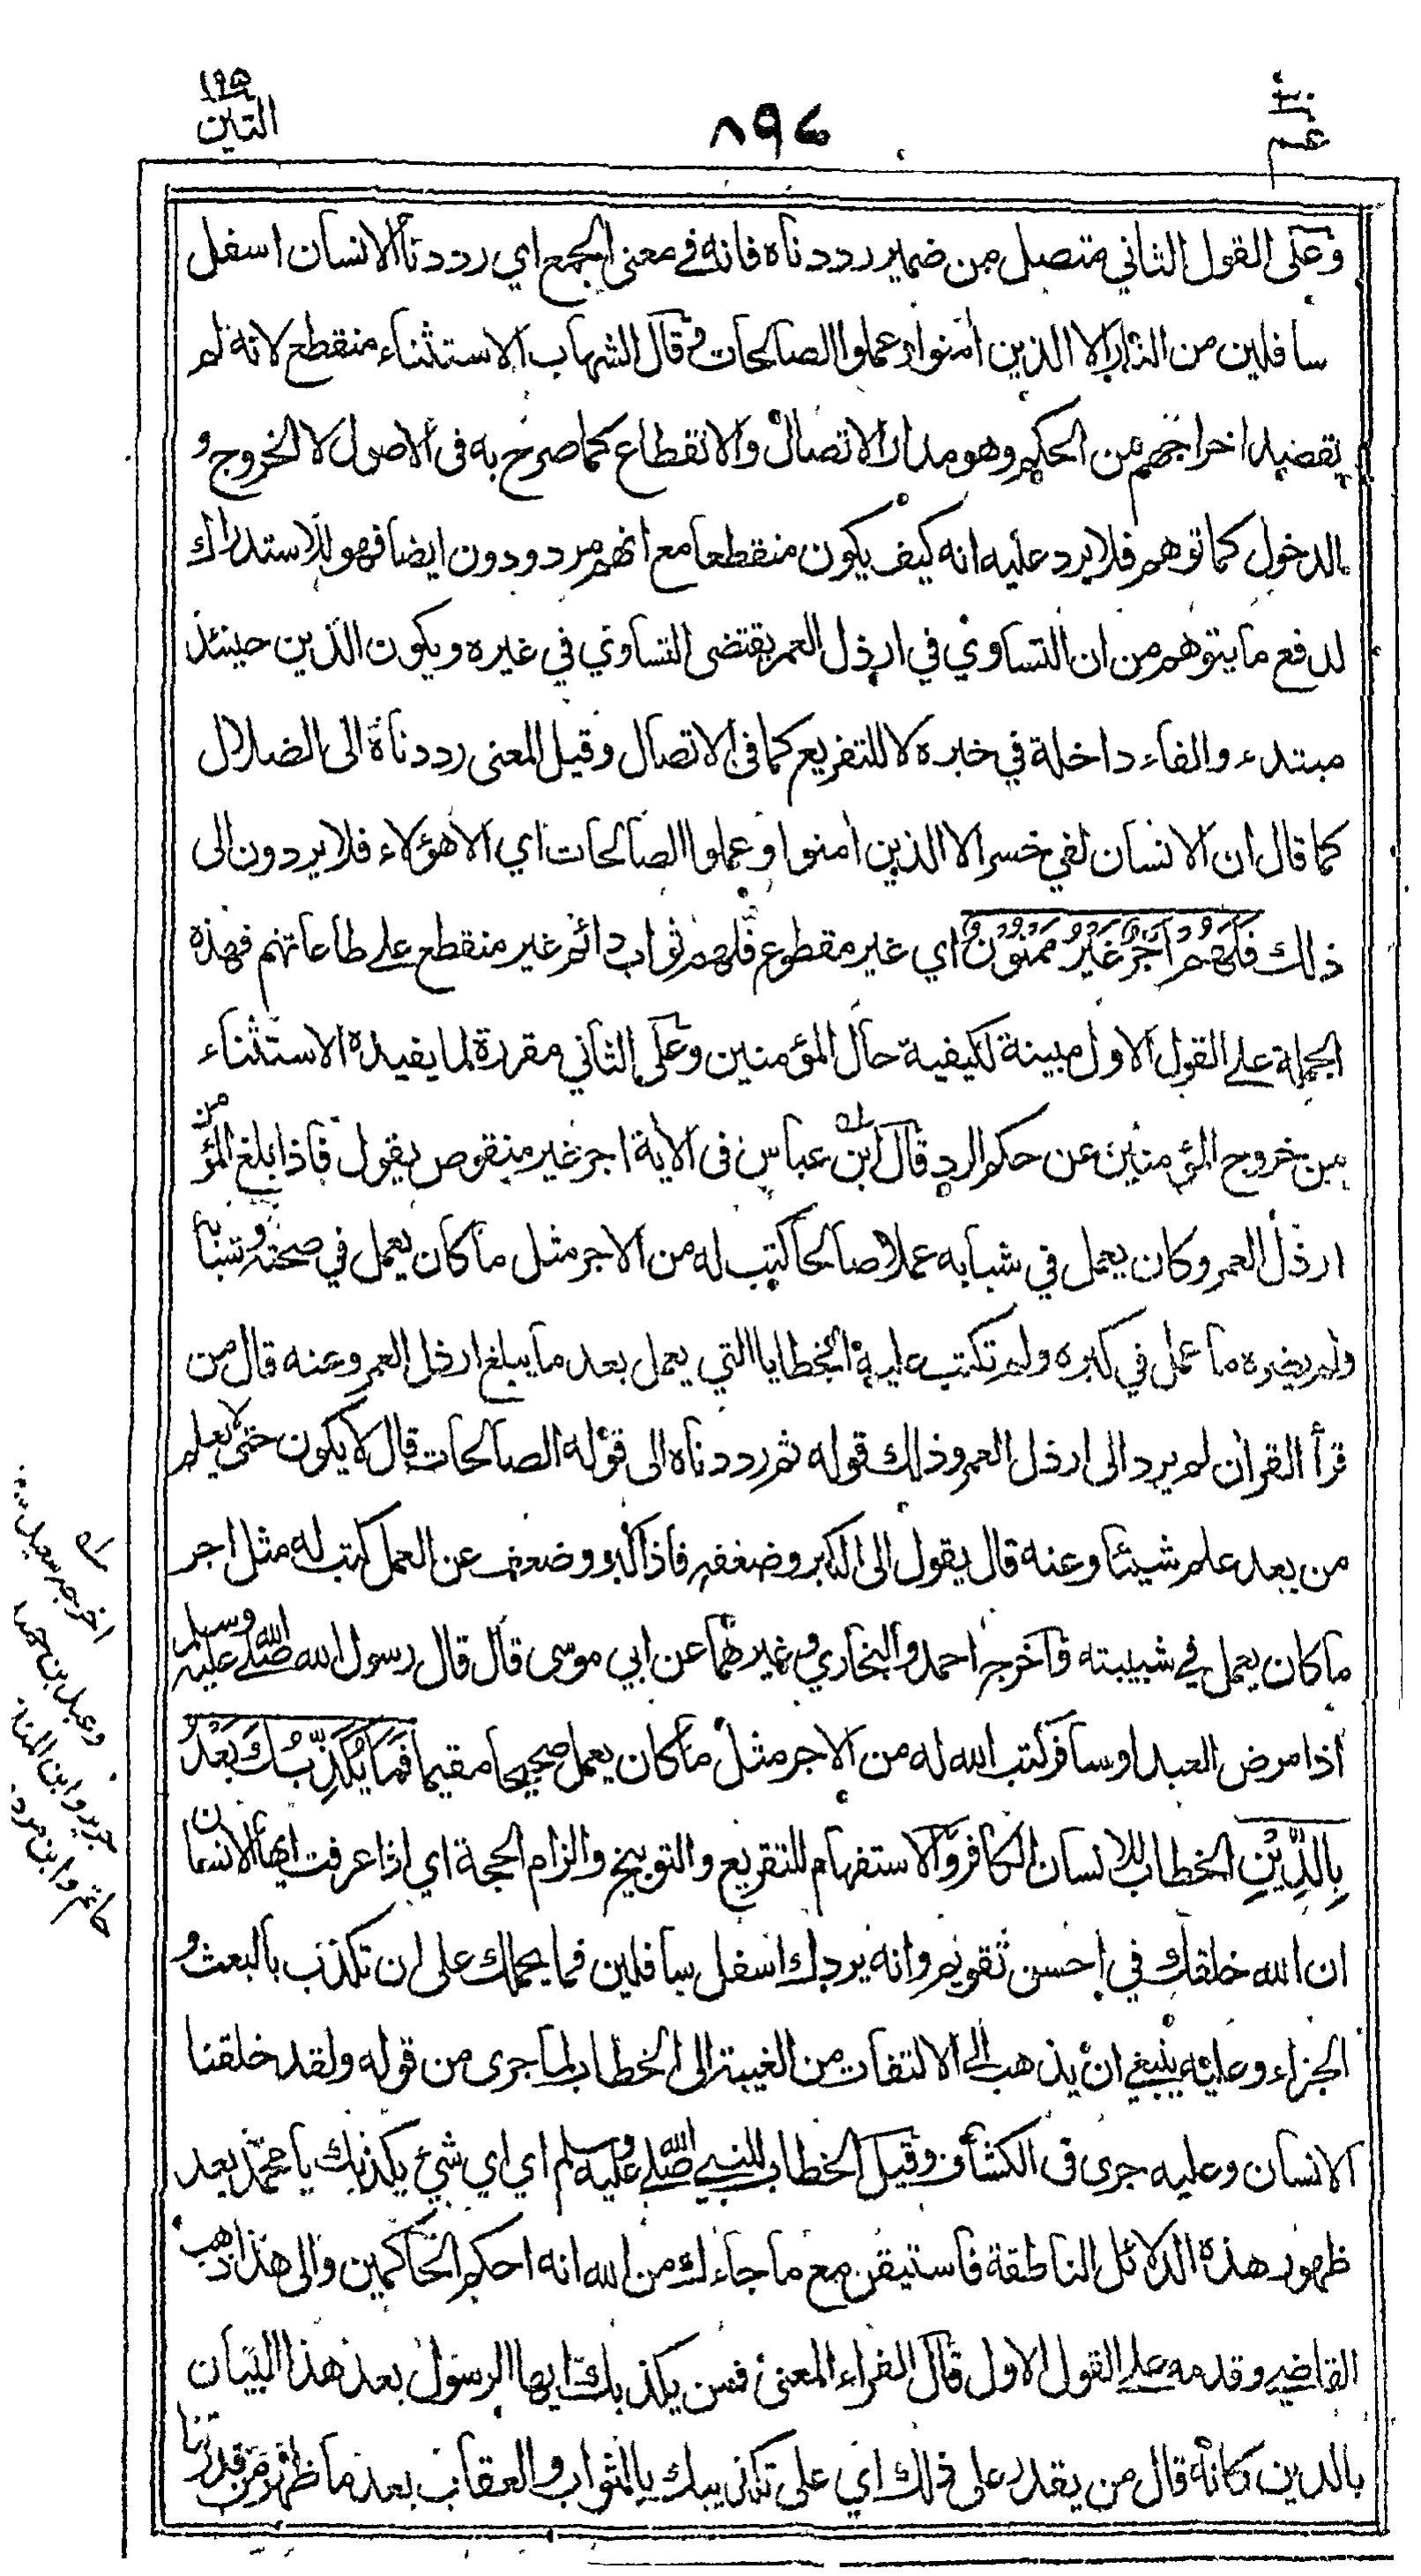 عم ٣٠
٨٩٦
التين ٩٥
وعلى القول الثاني متصل من ضمير رددناه فانه في معنى الجمع اي رددنا الانسان اسفل
سافلين من النار الا الذين اٰمنوا وعملوا الصالحات قال الشهاب الاستثناء منقطع لانه لم
يقصد اخراجهم من الحكم وهو مدار الاتصال والانقطاع كما صرح به في الاصول لا الخروج و
الدخول كما توهم فلا يرد عليه انه كيف يكون منقطعا مع انهم مردودون ايضا فهو للاستدراك
لدفع ما يتوهم من ان التساوي في ارذل العمر يقتضى التساوي في غيره ويكون الذين حينئذ
مبتدء والفاء داخلة في خبره لا للتفريع كما في الاتصال وقيل المعنى رددناه الى الضلال
كما قال ان الانسان لفي خسر الا الذين اٰمنوا وعملوا الصالحات اي الا هؤلاء فلا يردون الى
ذلك فَلَهُمْ اَجْرٌ غَيْرُ مَمْنُوْنٍ اي غير مقطوع فلهم ثواب دائم غير منقطع على طاعاتهم فهذه
الجملة على القول الاول مبينة لكيفية حال المؤمنين وعلى الثاني مقررة لما يفيده الاستثناء
من خروج المؤمنين عن حكم الرد قال ابن عباس في الاٰية اجر غير منقوص يقول فاذا بلغ المؤمن
ارذل العمر وكان يعمل في شبابه عملا صالحا كتب له من الاجر مثل ما كان يعمل في صحته وشبابه
ولم يضره ما عمل في كبره ولم تكتب عليه الخطايا التي يعمل بعد ما يبلغ ارذل العمر وعنه قال من
قرأ القراٰن لم يرد الى ارذل العمر وذلك قوله ثم رددناه الى قوله الصالحات قال لا يكون حتى لا يعلم
من بعد علم شيئا وعنه قال يقول الى الكبر وضعفه فاذا كبر وضعف عن العمل كتب له مثل اجر
ما كان يعمل في شبيبته واخرجه احمد والبخاري وغيرهما عن ابي موسى قال قال رسول الله صلى الله عليه وسلم
اذا مرض العبد او سافر كتب الله له من الاجر مثل ما كان يعمل صحيحا مقيما فَمَا يُكَذِّبُكَ بَعْدُ
بِالدِّيْنِ الخطاب للانسان الكافر والاستفهام للتقريع والتوبيخ والزام الحجة اي اذا عرفت ايها الانسان
ان الله خلقك في احسن تقويم وانه يردك اسفل سافلين فما يحملك على ان تكذب بالبعث و
الجزاء وعليه ينبغي ان يذهب الى الالتفات من الغيبة الى الخطاب لما جرى من قوله ولقد خلقنا
الانسان وعليه جرى في الكشاف وقيل الخطاب للنبي صلى الله عليه وسلم اي اي شيء يكذبك يا محمد بعد
ظهور هذه الدلائل الناطقة فاستيقن مع ما جاءك من الله انه احكم الحاكمين والى هذا ذهب
القاضي وقدمه على القول الاول قال الفراء المعنى فمن يكذبك ايها الرسول بعد هذا البيان
بالدين كانه قال من يقدر على ذلك اي على تكذيبك بالثواب والعقاب بعد ما ظهر من قدرتنا
اخرجه سعيد
وعبد بن حميد
جرير وابن المنذر
حاتم وابن مردويه